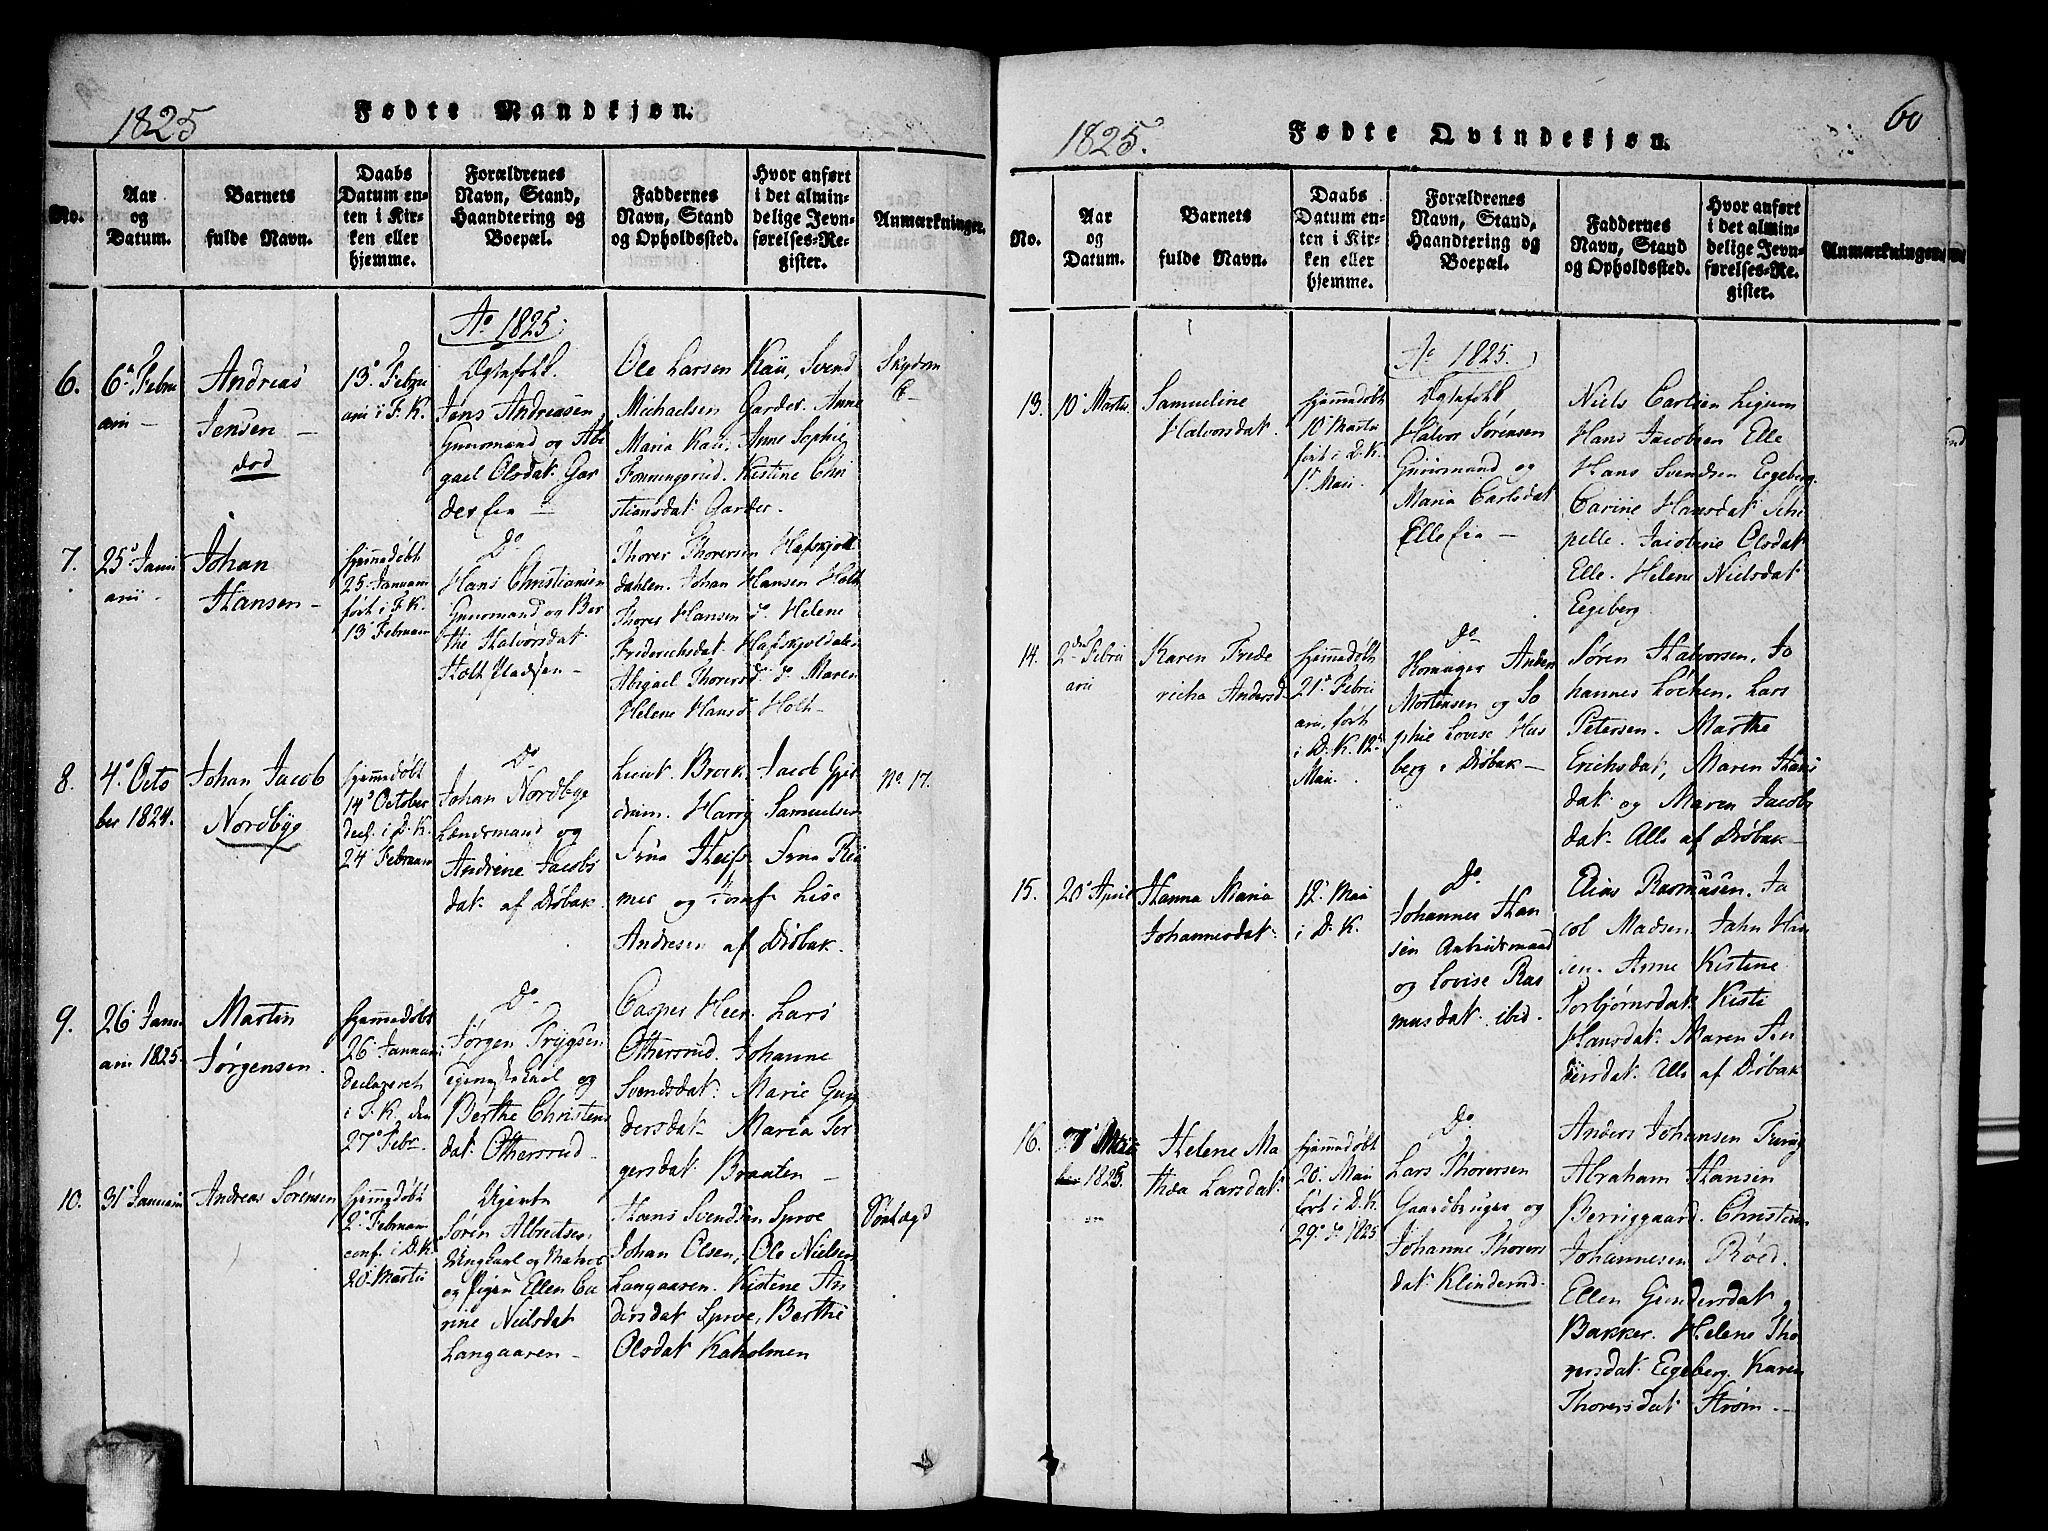 1825
Fødte Mandkjøn.
No.
Aar
og
Datum.
Barnets
fulde Navn.
Daabs
Datum en-
ten i Kir-
ken eller
hjemme.
Forældrenes
Navn, Stand,
Haandtering og
Boepæl.
Faddernes
Navn, Stand
og Opholdssted.
Hvor anført
i det almin-
delige Jevn-
førelses-Re-
gister.
Anmærkninger.
Ao 1825
6.
6 Febru
arii
Andreas
Jensen
død
13 Febru
arii i F. K.
Ægtefolk
Jens Andreasen
Gaardmand og Abi
gael Olsdat. Gar
der fra
Ole Larsen Kaü, Svend
Michaelsen Garder. Anne
Maria Kaü, Anne Sophie
Fonningsrud. Kistine Chri
stiansdat. Garder.
7.
25 Janu
arii
Johan
Hansen
hjemmedøbt
25 Januarii
ført i F. K.
13 Februarii
Do
Hans Christiansen
Huusmand og Ber
the Halvorsdat.
Holt Pladsen
Thorer Thorersen Hafskjold
dahlen. Johan Hansen Holt
Thores Hansen do Helene
Frederichsdat. Hafskjoldalen
Abigael Thorersd. do Maren
Helene Hansd. Holt
8.
4 Octo
ber 1824.
Johan Jacob
Nordbye
hjemmedøbt
14 October
decl. i D. K.
24 Februarii
Do
Johan Nordbye
Lændsmand og
Andrine Jacobs
dat. af Drøbak.
Lieut. Brock. Jacob
drum. Harry Samuelsen
Frue Frue Rei
mer og Jomf. Lise
Andresen af Drøbak.
No. 17.
9.
26 Janu
arii 1825.
Martin
Jørgensen.
hjemmedøbt
26 Januarii
declareret
i F. K. den
27 Febr.
Do
Jørgen Trygsen
og
Berthe Christens
dat. Ottersrud
Casper Heer. Lars
Ottersrud. Johanne
Svendsdat. Marie Gun
dersdat. Maria Tor
gersdat. Braaten
10.
31 Januarii
Andreas Sørensen
hjemmedøbt
2 Februarii
conf. i D. K.
20 Martii
Uægte
Søren Albretsen
Ungkarl og Matros
og Pigen Ellen Ca
rine Nielsdat
Langaaren
Hans Svendsen Sproe
Johan Olsen, Ole Nielsen
Langaaren. Kistine An
dersdat Sproe, Berthe
Olsdat Kaholmen
1825.
Fødte Qvindekjøn.
60
No.
Aar
og
Datum.
Barnets
fulde Navn.
Daabs
Datum en-
ten i Kir-
ken eller
hjemme.
Forældrenes
Navn, Stand,
Haandtering og
Boepæl.
Faddernes
Navn, Stand
og Opholdssted.
Hvor anført
i det almin-
delige Jevn-
førelses-Re-
gister.
Anmærkninger.
Ao 1825.
13.
10 Martii
Samueline
Halvorsdat.
hjemmedøbt
10 Martii
ført i D. K.
1 Maii
Ægtefolk
Halvor Sørensen
Huusmand og
Maria Carlsdat
Elle fra
Niels Carlsen Ligum
Hans Jacobsen Elle
Hans Svendsen Egeberg.
Carine Hansdat. Ski
pelle. Jacobine Olsdat
Elle. Helene Nielsdat
Egeberg.
14.
2den Febru
arii
Karen Frede
richa Andersd.
hjemmedøbt
21 Febru
arii, ført
i D. K. 12
Maii.
Do
Anders
Mortensen og So
phie Lovise Hus
berg i Drøbak
Søren Halvorsen. Jo
hannes Løchen. Lars
Petersen. Marthe
Erichsdat, Maren Hans
dat. og Maren Jacobs
dat. Alle af Drøbak
15.
20 April
Hanna Maria
Johannesdat.
12 Maii
i D. K.
Do
Johannes Han
sen Arbeidsmand
og Lovise Ras
musdat. ibid.
Elias Rasmussen. Ja
cob Madsen. Jahn Han
sen. Anne Kistine
Torbjørnsdat. Kisti
Hansdat. Maren An
dersdat. Alle af Drøbak
16.
Maii
1825.
Helene Ma
thea Larsdat.
hjemmedøbt
20. Maii
ført i D. K.
29 1825
Do
Lars Thorersen
Gaardbruger og
Johanne Thorers
dat. Klinderud.
Anders Johansen
Abraham Hansen
Berriggaard. Christian
Johannesen Røed.
Ellen Gundersdat
Bakker. Helene Tho
gersdat. Egeberg. Karen
Thorersdat Strøm.